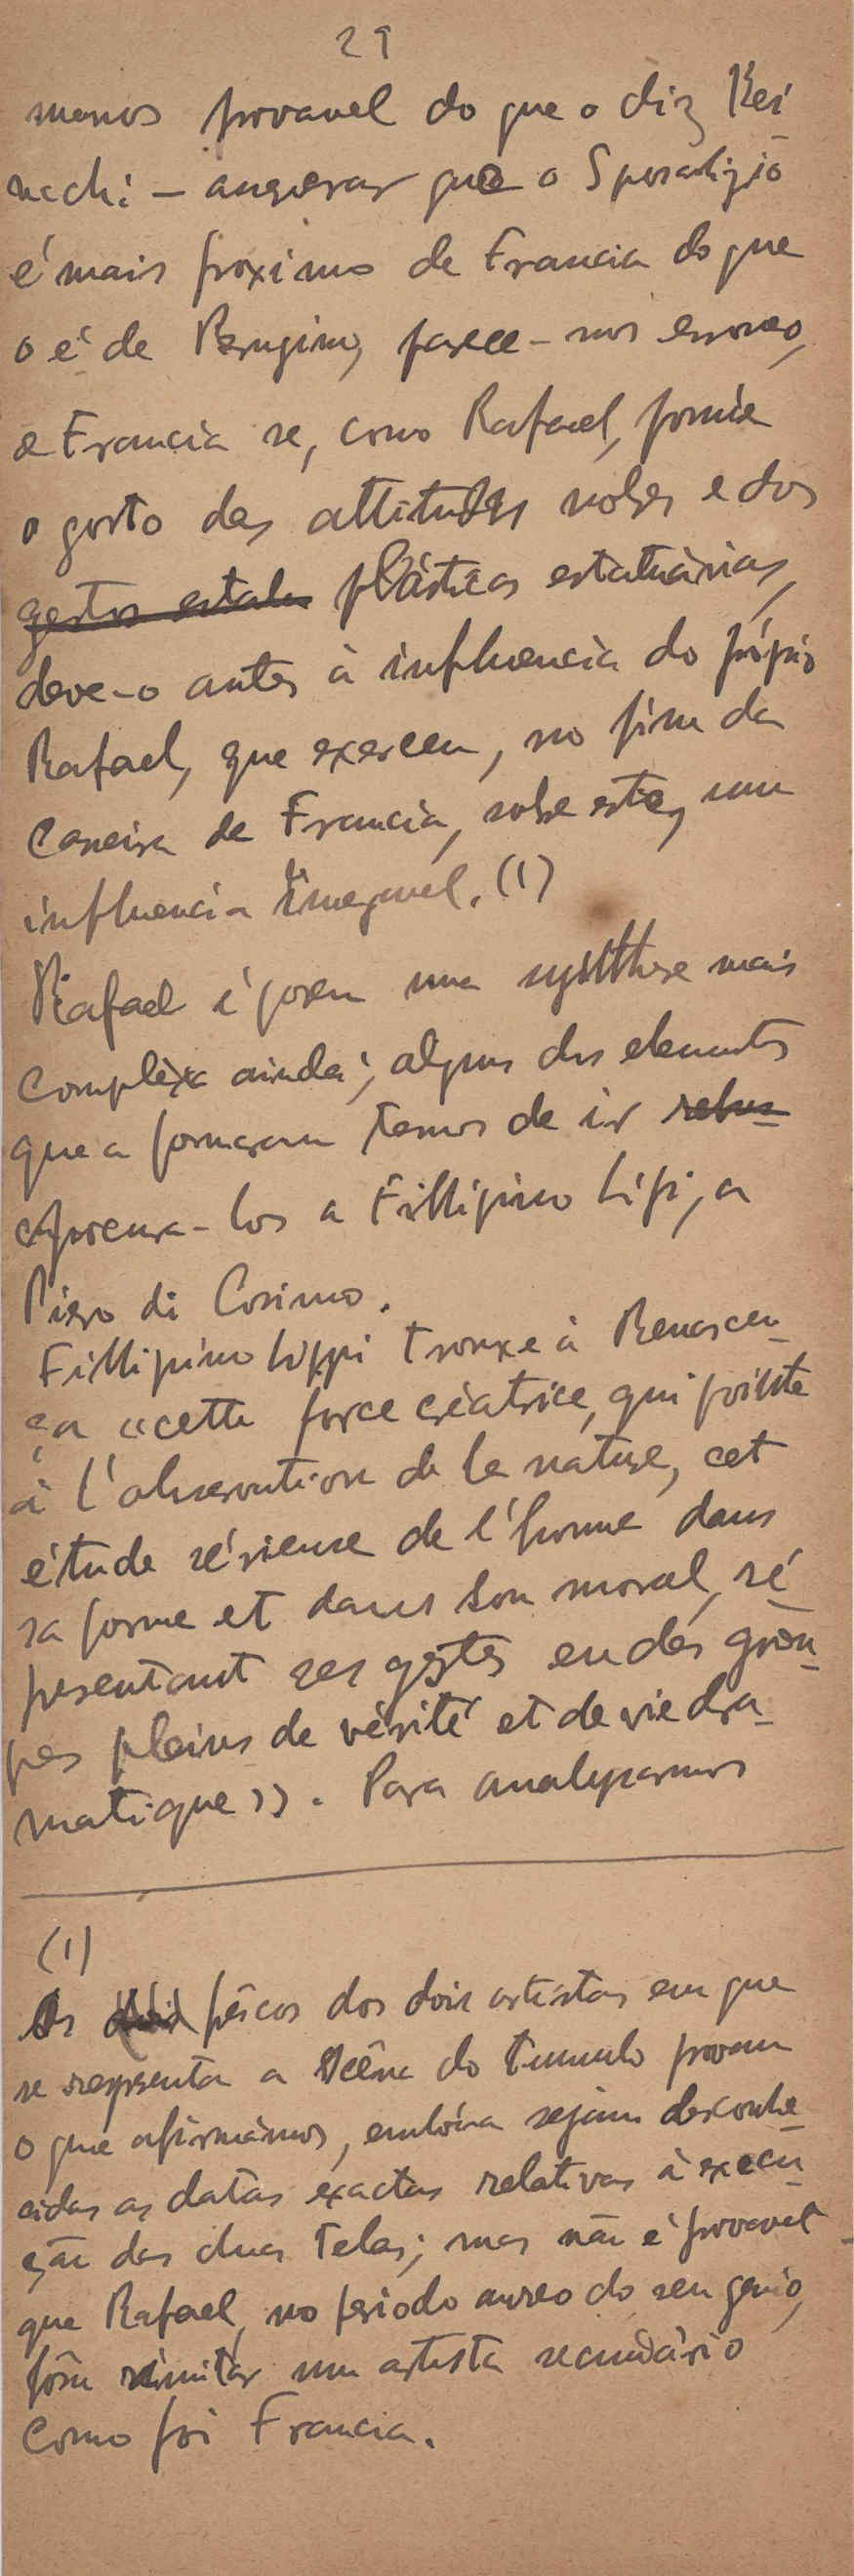 29
menos provavel do que o diz Rei-
nach: – assegurar que o Sposalizio
é mais proximo de Francia do que
o é de Perugino, parece-nos erroneo,
e Francia se, como Rafael, possúe
o gosto das attitudes nobres e dos
gestos estatu plásticas estatuárias,
deve-o antes à influencia do própio
Rafael, que exerceu, no fim da
Carreira de Francia, sobre este, uma
influencia inegavel. (1)
Rafael é porem uma synthese mais
complèxa ainda; alguns dos elementos
que a formaram temos de ir rebus-
a Fillipino Lipi, a
Piero di Cosimo.
Fillipino Lippi trouxe à Renascen-
ça «cette force créatrice, qui pointe
à l'observation de la nature, cet
étude sérieuse de l'homme dans
sa forme et dans son moral, ré
presentant ses gestes en des grou-
pes pleins de vérité et de vie dra-
matique». Para analysarmos
(1)
Os dois frescos dos dois artistas em que
se representa a Scêna do tumulo provam
o que afirmámos, embóra sejam desconhe-
cidas as datas exactas relativas à execu-
ção das duas telas; mas não é provavel
que Rafael, no periodo aureo do seu genio,
fôsse imitar um artista secundário
como foi Francia.